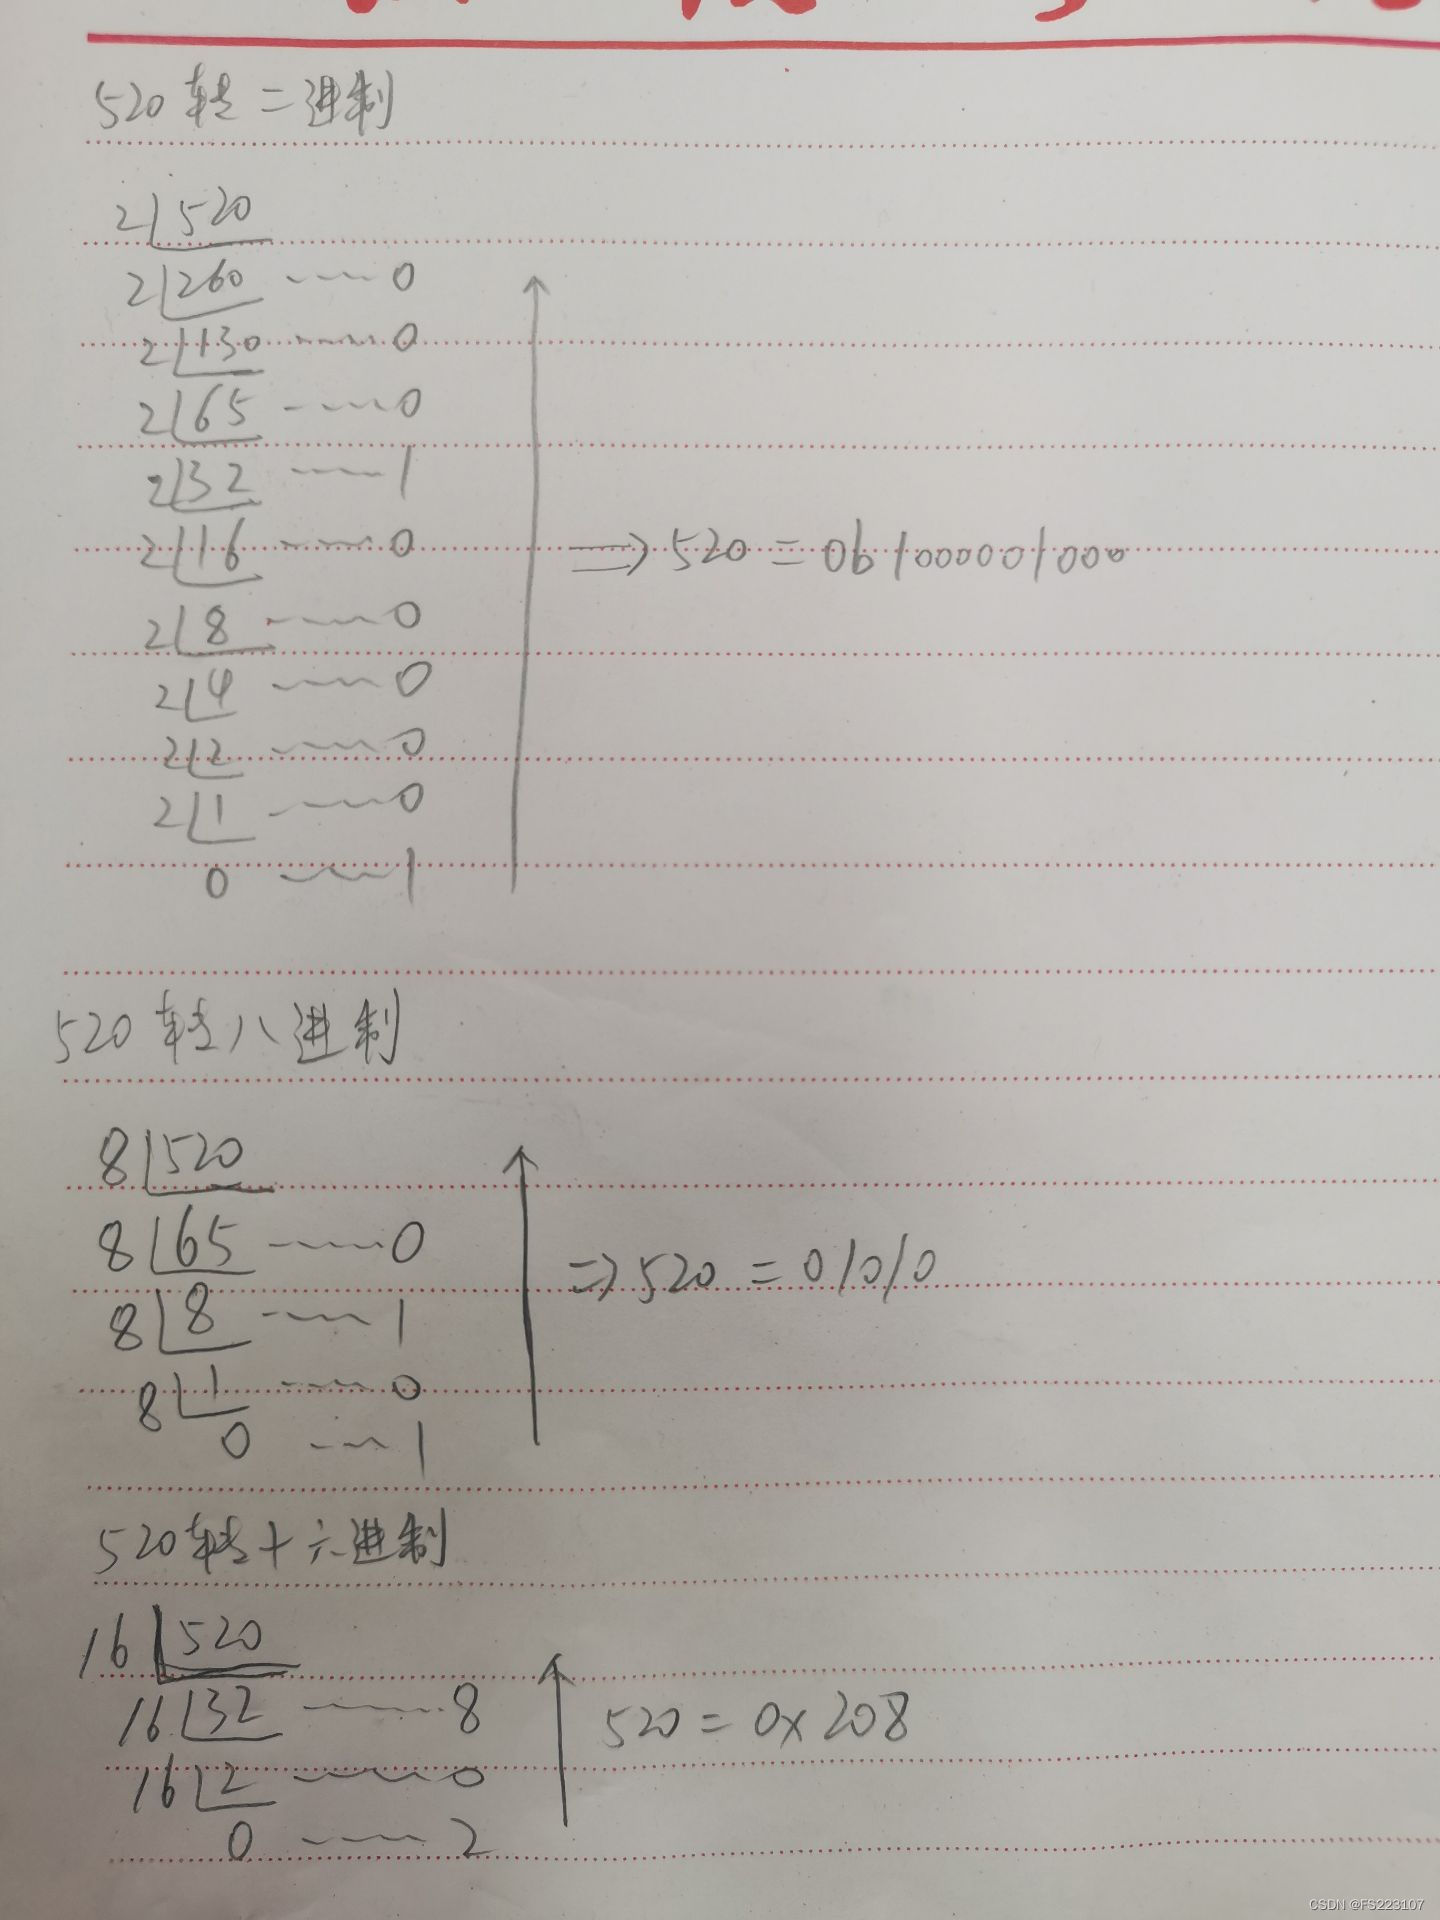 520转二进制
2 520
2 260 ----- 0
2 130 ----- 0
2 65 ----- 0
2 32 ----- 1
2 16 ----- 0
⇒ 520 = 0b1000001000
2 8 ----- 0
2 4 ----- 0
2 2 ----- 0
2 1 ----- 0
0 ----- 1
520转八进制
8 520
8 65 ----- 0
⇒ 520 = 01010
8 8 ----- 1
8 1 ----- 0
0 --- 1
520转十六进制
16 520
16 32 ----- 8
520 = 0x208
16 2 ----- 0
0 ----- 2
CSDN @FS223107